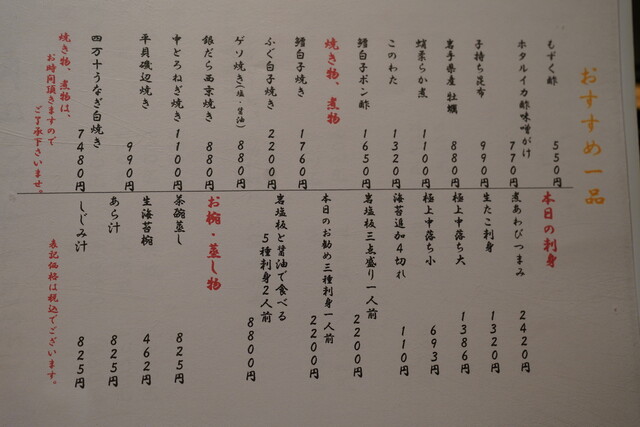 おすすめ一品
もずく酢 550円
ホタルイカ酢味噌がけ 770円
子持ち昆布 990円
岩手県産 牡蠣 880円
蛸柔らか煮 1100円
このわた 1320円
鱈白子ポン酢 1650円
焼き物、煮物
鱈白子焼き 1760円
ふぐ白子焼き 2200円
ゲソ焼き(塩・醤油) 880円
銀だら西京焼き 880円
中とろねぎ焼き 1100円
平貝磯辺焼き 990円
四万十うなぎ白焼き 7480円
焼き物、煮物は、
お時間頂きますので
ご了承下さいませ。
本日の刺身
煮あわびつまみ 2420円
生たこ刺身 1320円
極上中落ち大 1386円
極上中落ち小 693円
海苔追加4切れ 110円
岩塩板三点盛り一人前 2200円
本日のお勧め三種刺身一人前 2200円
岩塩板と醤油で食べる
5種刺身2人前 8800円
お椀・蒸し物
茶碗蒸し 825円
生海苔椀 462円
あら汁 825円
しじみ汁 825円
表記価格は税込でございます。